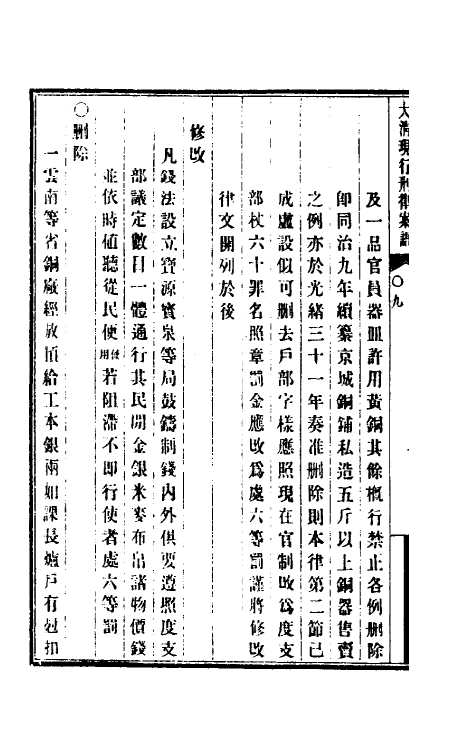 大清現行刑律案語
〇九
及一品官員器皿許用黃銅其餘槪行禁止各例刪除
卽同治九年續纂京城銅鋪私造五斤以上銅器售賣
之例亦於光緒三十一年奏准刪除則本律第二節已
成虛設似可刪去戶部字樣應照現在官制改爲度支
部杖六十罪名照章罰金應改爲處六等罰謹將修改
律文開列於後
修改
凡錢法設立寶源寶泉等局鼓鑄制錢內外俱要遵照度支
部議定數目一體通行其民間金銀米麥布帛諸物價錢
並依時值聽從民便使用若阻滯不卽行使者處六等罰
〇刪除
一雲南等省銅廠經放預給工本銀兩如課長爐戶有剋扣